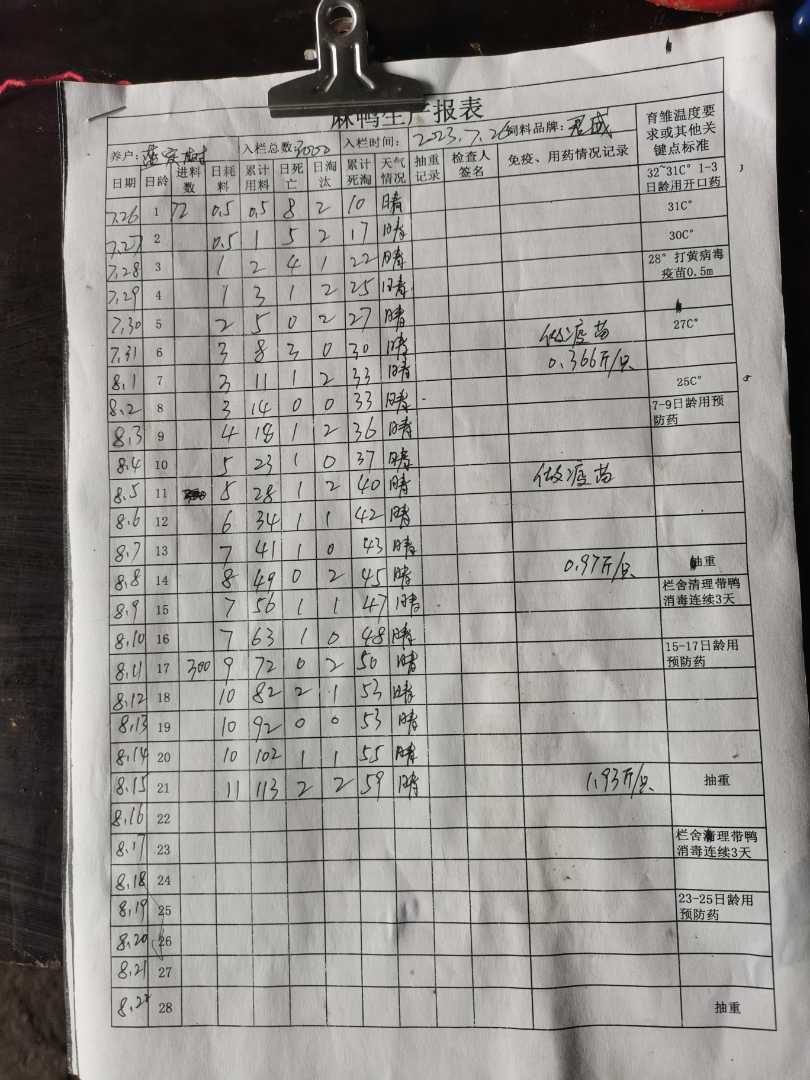 麻鸭生产报表
养户: 入栏总数:3000 入栏时间: 2023.7.26 饲料品牌: 育雏温度要求或其他关键点标准
日期 日龄 进料数 日耗料 累计用料 日死亡 日淘汰 累计死淘 天气情况 抽重记录 检查人签名 免疫、用药情况记录
32~31C° 1-3日龄用开口药
7.26 1 72 0.5 0.5 8 2 10 晴 31C°
7.27 2 0.5 1 5 2 17 晴 30C°
7.28 3 1 2 4 1 22 晴 28° 打黄病毒疫苗0.5m
7.29 4 1 3 1 2 25 晴
7.30 5 2 5 0 2 27 晴 27C°
7.31 6 3 8 3 0 30 晴 做疫苗
8.1 7 3 11 1 2 33 晴 0.366斤/只 25C°
8.2 8 3 14 0 0 33 晴 7-9日龄用预防药
8.3 9 4 18 1 2 36 晴
8.4 10 5 23 1 0 37 晴
8.5 11 5 28 1 2 40 晴 做疫苗
8.6 12 6 34 1 1 42 晴
8.7 13 7 41 1 0 43 晴
8.8 14 8 49 0 2 45 晴 0.97斤/只 抽重
8.9 15 7 56 1 1 47 晴 栏舍清理带鸭消毒连续3天
8.10 16 7 63 1 0 48 晴
8.11 17 300 9 72 0 2 50 晴 15-17日龄用预防药
8.12 18 10 82 2 1 53 晴
8.13 19 10 92 0 0 53 晴
8.14 20 10 102 1 1 55 晴
8.15 21 11 113 2 2 59 晴 1.93斤/只 抽重
8.16 22
8.17 23 栏舍清理带鸭消毒连续3天
8.18 24
8.19 25 23-25日龄用预防药
8.20 26
8.21 27
8.22 28 抽重